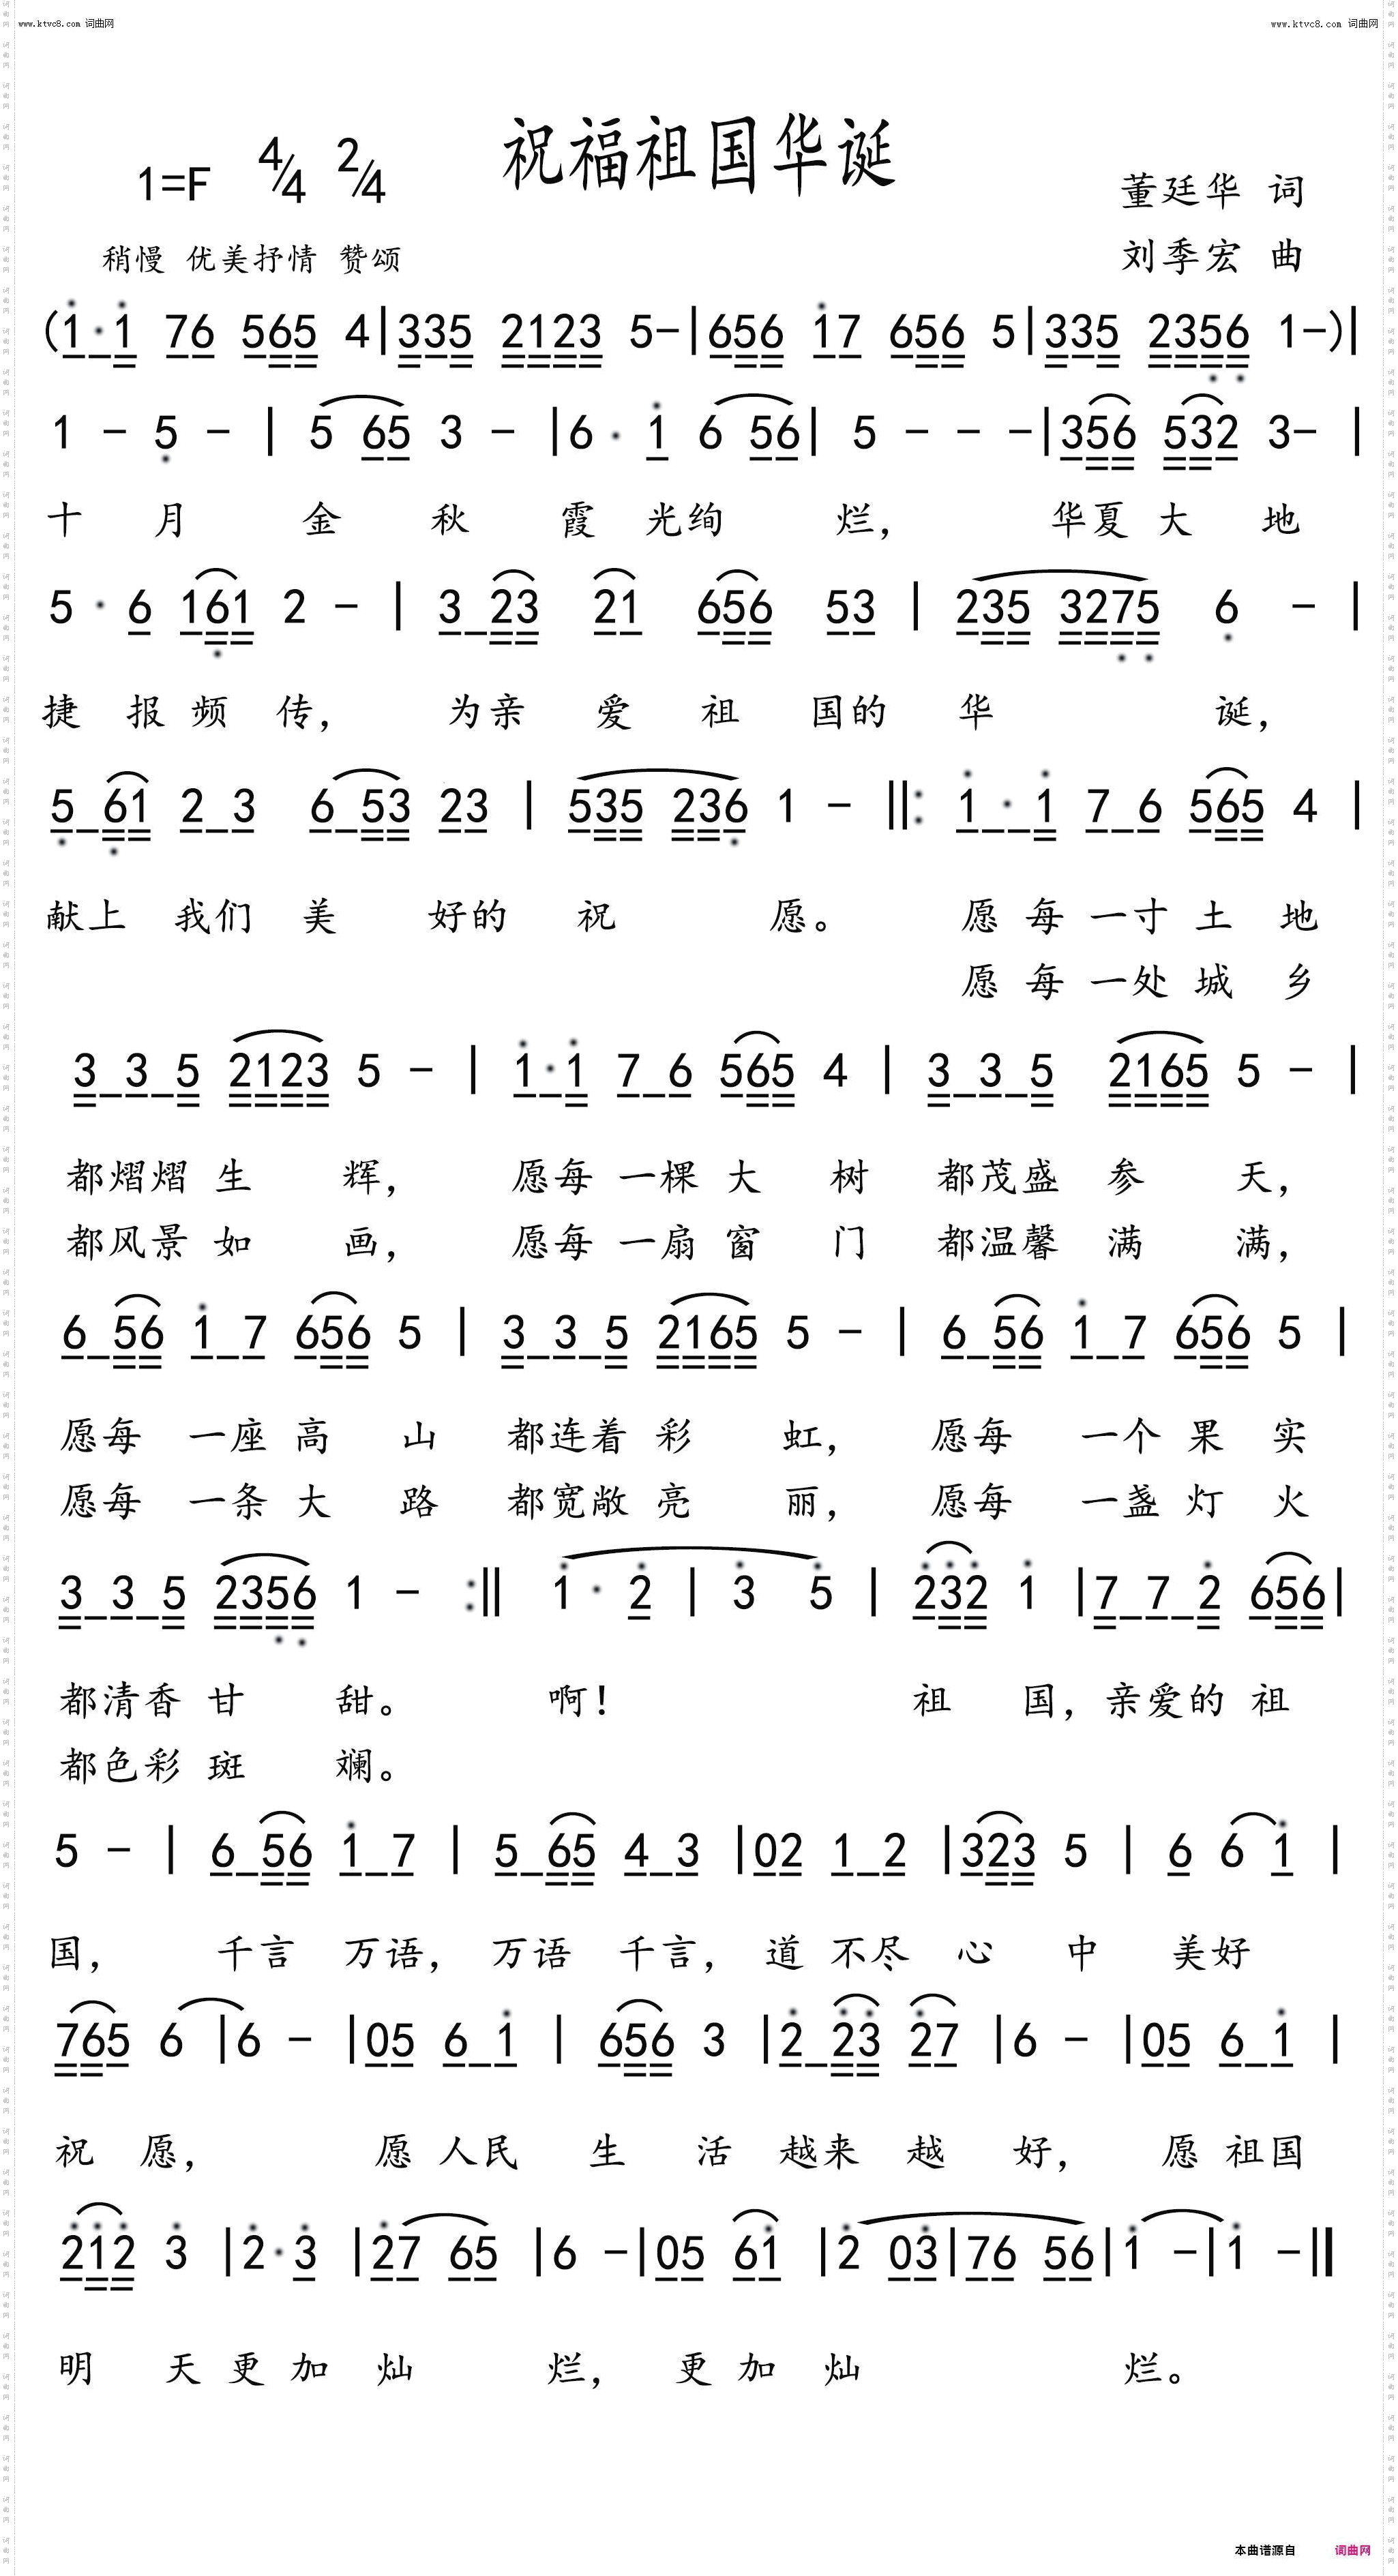 www.ktvc8.com 词曲网 www.ktvc8.com 词曲网
祝福祖国华诞
1=F 4/4 2/4
董廷华 词
稍慢 优美抒情 赞颂
刘季宏 曲
(1·1 76 565 4|335 2123 5-|656 17 656 5|335 2356 1-)|
1 - 5 - | 5 65 3 - |6· 1 6 56| 5 - - -|356 532 3- |
十 月 金 秋 霞 光绚 烂, 华夏 大 地
5· 6 161 2 - | 3 23 21 656 53 | 235 3275 6 - |
捷 报 频 传, 为亲 爱 祖 国的 华 诞,
5 61 2 3 6 53 23 | 535 236 1 - ‖: 1·1 7 6 565 4 |
献上 我们 美 好的 祝 愿。 愿 每 一寸 土 地
愿 每 一处 城 乡
3 3 5 2123 5 - | 1·1 7 6 565 4 | 3 3 5 2165 5 - |
都熠熠 生 辉, 愿每 一棵 大 树 都茂盛 参 天,
都风景 如 画, 愿每 一扇 窗 门 都温馨 满 满,
6 56 1 7 656 5 | 3 3 5 2165 5 - | 6 56 1 7 656 5 |
愿每 一座 高 山 都连着 彩 虹, 愿每 一个 果 实
愿每 一条 大 路 都宽敞 亮 丽, 愿每 一盏 灯 火
3 3 5 2356 1 - :‖ 1· 2 | 3 5 | 232 1 |7 7 2 656|
都清香 甘 甜。 啊! 祖 国, 亲爱的 祖
都色彩 斑 斓。
5 - | 6 56 1 7 | 5 65 4 3 |02 1 2 |323 5 | 6 6 1 |
国, 千言 万语, 万语 千言, 道 不尽 心 中 美好
765 6 |6 - |05 6 1 | 656 3 |2 23 27 |6 - |05 6 1 |
祝 愿, 愿 人民 生 活 越来 越 好, 愿 祖国
212 3 |2·3 |27 65 |6 -|05 61 |2 03|76 56|1 -|1 -‖
明 天 更 加 灿 烂, 更 加 灿 烂。
本曲谱源自 词曲网